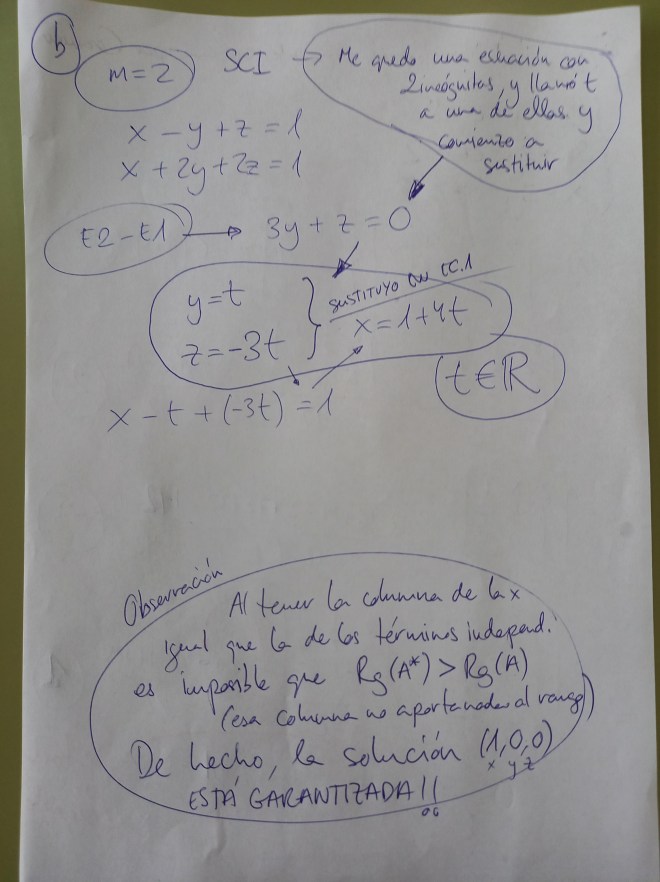 b
m=2 SCI → Me quedo una ecuación con
2 incógnitas, y llamo t
a una de ellas y
comienzo a
sustituir
x - y + z = 1
x + 2y + 2z = 1
E2 - E1 → 3y + z = 0
y = t
z = -3t
SUSTITUYO EN EC.1
x = 1 + 4t
t ∈ ℝ
x - t + (-3t) = 1
Observación
Al tener la columna de la x
igual que la de los términos independ.
es imposible que Rg(A*) > Rg(A)
(esa columna no aporta nada al rango)
De hecho, la solución (1,0,0)
x y z
ESTÁ GARANTIZADA!!